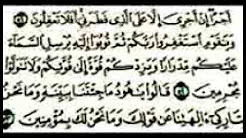 أَجْرًا إِنْ أَجْرِىَ إِلَّا عَلَى ٱلَّذِى فَطَرَنِىٓ أَفَلَا تَعْقِلُونَ ٥١
وَيَٰقَوْمِ ٱسْتَغْفِرُوا۟ رَبَّكُمْ ثُمَّ تُوبُوٓا۟ إِلَيْهِ يُرْسِلِ ٱلسَّمَآءَ
عَلَيْكُم مِّدْرَارًا وَيَزِدْكُمْ قُوَّةً إِلَىٰ قُوَّتِكُمْ وَلَا تَتَوَلَّوْا۟
مُجْرِمِينَ ٥٢ قَالُوا۟ يَٰهُودُ مَا جِئْتَنَا بِبَيِّنَةٍ وَمَا نَحْنُ
بِتَارِكِىٓ ءَالِهَتِنَا عَن قَوْلِكَ وَمَا نَحْنُ لَكَ بِمُؤْمِنِينَ